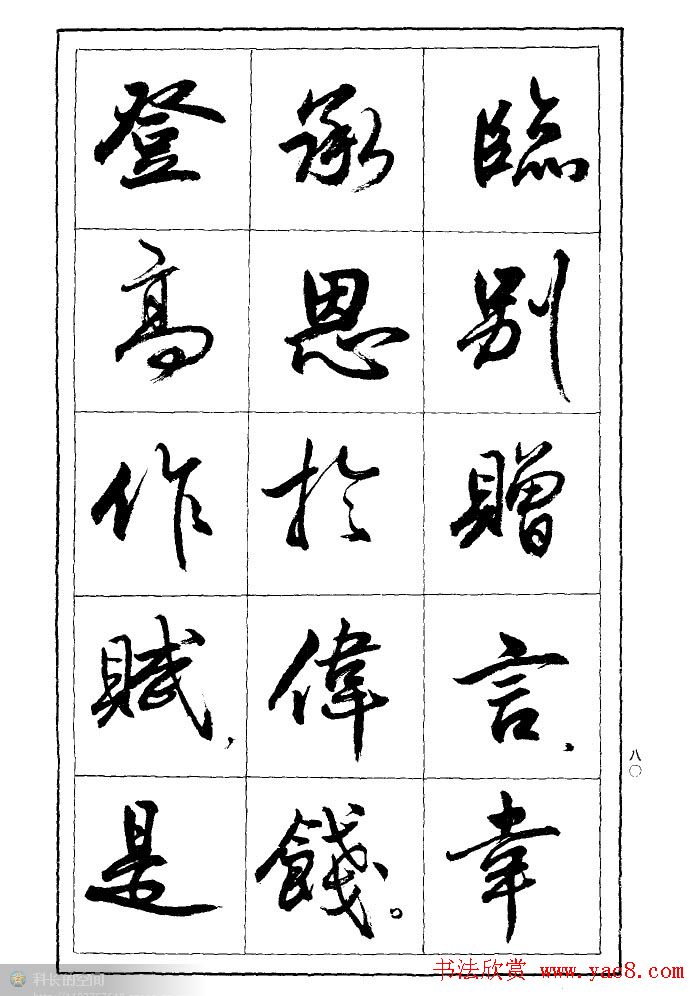 臨別贈言、幸
承恩於偉餞。
登高作賦，是
八〇
书法欣赏 www.yac8.com
科长的空间